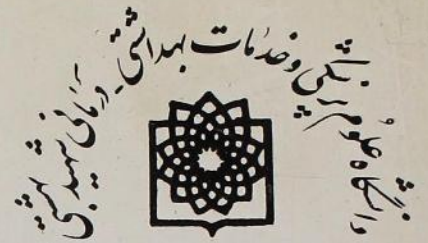 دانشگاه علوم پزشکی و خدمات بهداشتی - درمانی شهید بهشتی